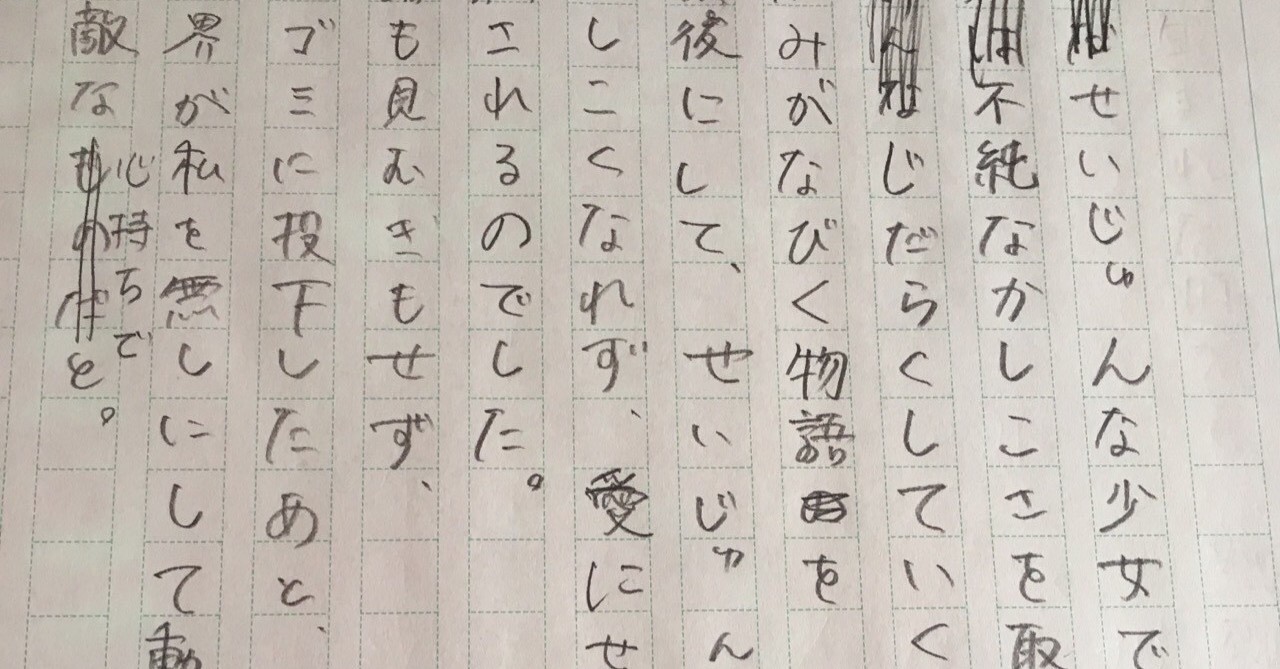 せいじゅんな少女で
不純なかしこさを取
なじだらくしていく
みがなびく物語を
後にして、せいじゅん
しこくなれず、愛にせ
されるのでした。
も見むきもせず、
ゴミに投下しためと、
界が私を無しにして動
敵な心持ちでと。